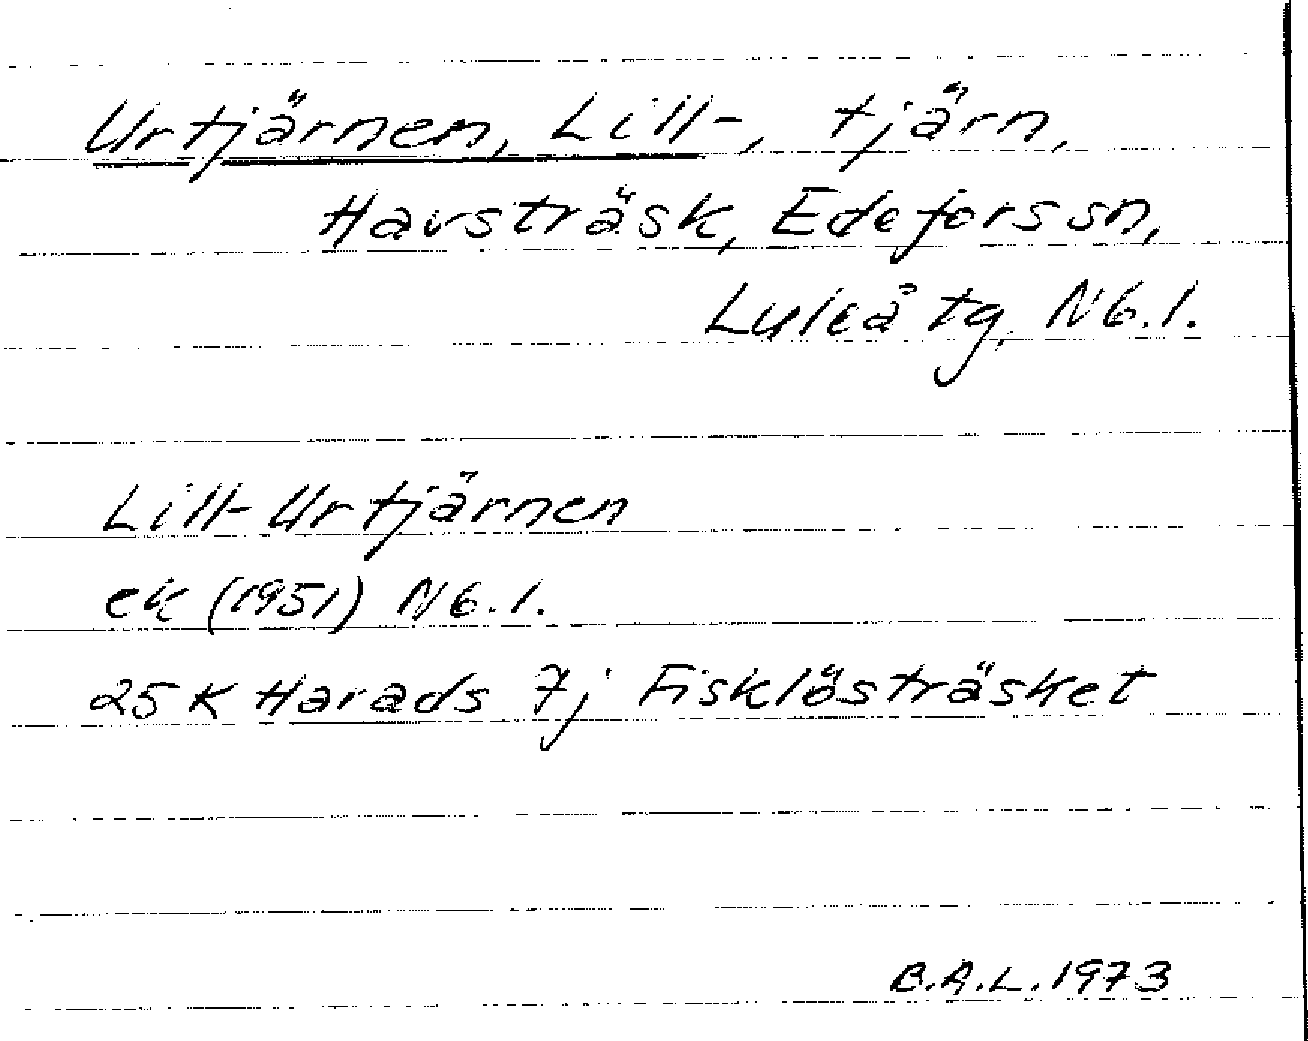 Urtjärnen, Lill-, tjärn,
Havsträsk, Edefors sn,
Luleå tg, Nb.l.
Lill-Urtjärnen
ek (1951) Nb.l.
25K Harads 7j Fisklösträsket
B.A.L. 1973